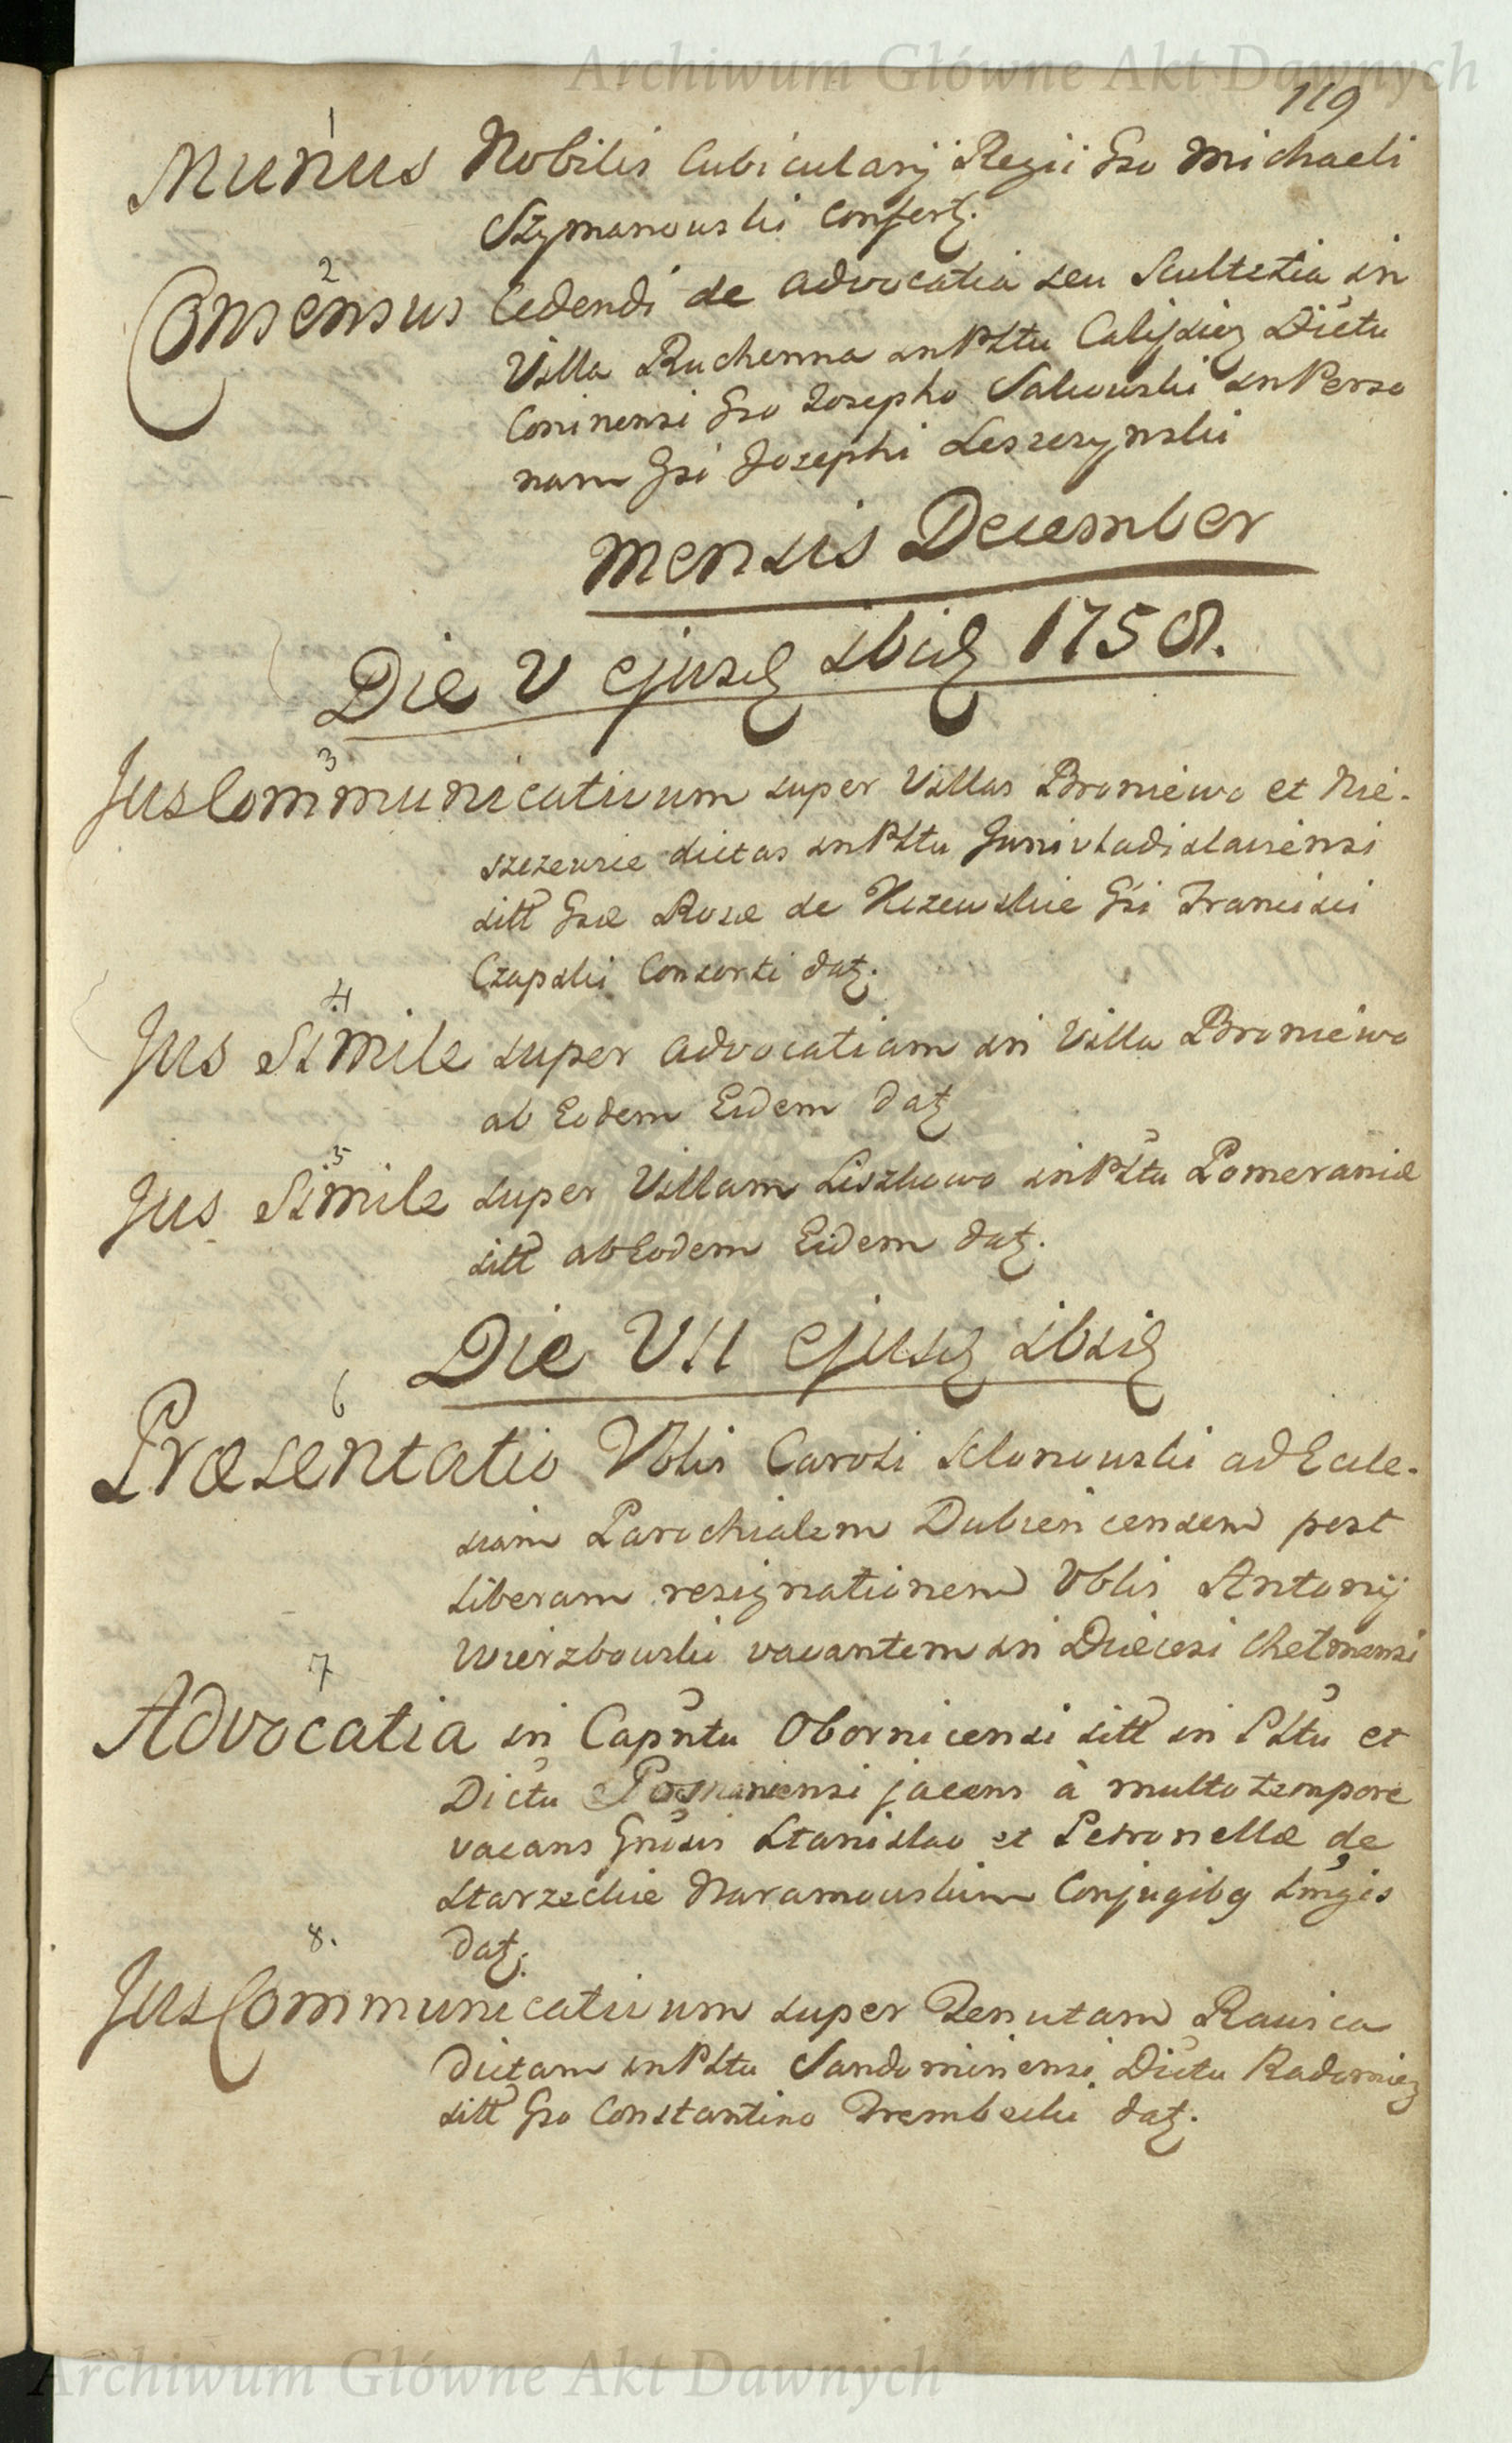 Archiwum Główne Akt Dawnych
119
1
Munus Nobilis Cubicularij Regii Gso Michaeli
Szymanowski Confertz.
2
Consensus Cedendi de Advocatia seu Scultetia in
Villa Ruchenna in Pltu Calissiez Dictu
Coninensi Gso Josepho Sakowski in Perso
nam Gsi Josephi Leszczynski
Mensis December
Die V ejusd ibid 1758.
3
Jus Communicativum super Villas Broniewo et Nie-
szczewice dictas in Pltu Junivladislaviensi
sitt Gsæ Rosæ de Kczewskie Gsi Francisci
Czapski Consorti datz.
4
Jus Simile super Advocatiam in Villa Broniewo
ab Eodem Eidem datz
5
Jus Simile super Villam Liszkowo in Pltu Pomeraniæ
sitt ab Eodem Eidem datz.
Die VII ejusd ibid
6
Præsentatio Vblis Caroli Sclonowski ad Eccle-
siam Parochialem Dubiencensem post
liberam resignationem Vblis Antonij
Wierzbowski vacantem in Diœcesi Chelmensi
7
Advocatia in Capntu Obornicensi sitt in Pltu et
Dictu Posnaniensi jacens à multo tempore
vacans Gnosis Stanislao et Petronellæ de
Starzeckie Naramowskim Conjugibq Smgis
datz.
8.
Jus Communicativum super Tenutam Rawica
dictam in Pltu Sandomiriensi Dictu Radomiez
sitt Gso Constantino Trembecki datz.
Archiwum Główne Akt Dawnych